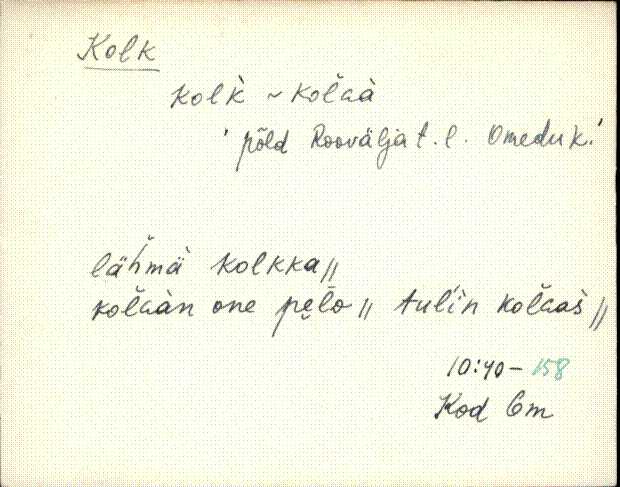 Kolk
kolk̀ ~ kol̆ɢà
' põld Rooväljat. l. Omedu k.'
lähmä kolkka //
kol̆ɢàn one pe̮l̆o // tul'in kol̆ɢas̀ //
10:40 – 158
Kod Om